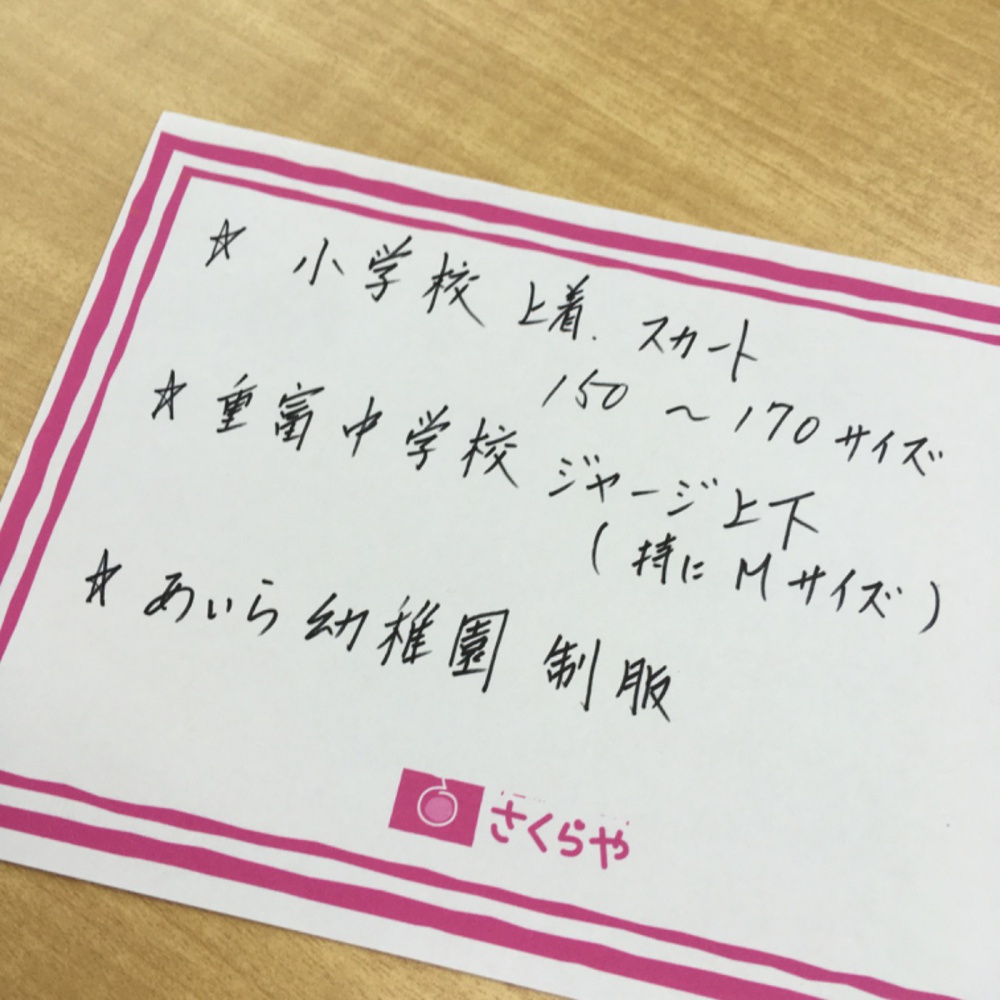 ☆ 小学校 上着. スカート
150 〜 170 サイズ
☆ 重富中学校 ジャージ上下
( 特に M サイズ )
☆ あいら 幼稚園 制服
さくらや